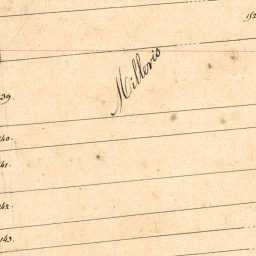 152
Milleris
39.
140.
141.
142.
143.